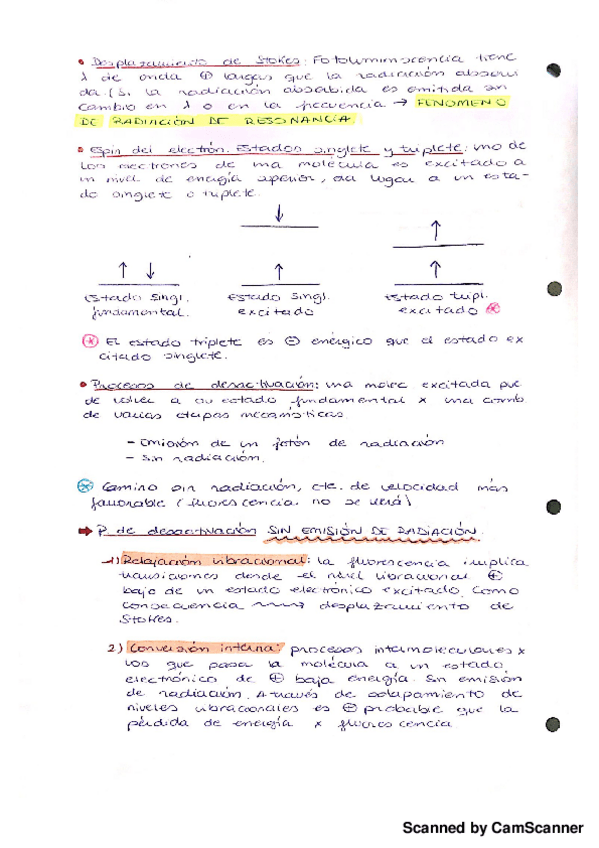 • Desplazamiento de Stokes: Fotoluminiscencia tiene
λ de onda ⊕ largas que la radiación absorvi
da. (Si la radiación absorbida es emitida sin
cambio en λ o en la frecuencia → FENOMENO
DE RADIACIÓN DE RESONANCIA.
• Espin del electrón. Estados singlete y triplete: uno de
los electrones de una molécula es excitado a
un nivel de energía superior, da lugar a un esta-
do singlete o triplete.
↓ ↑
↑ ↓ ↑ ↑
Estado Singl. Estado Singl. Estado tripl.
fundamental. excitado excitado *
* El estado triplete es ⊖ enérgico que el estado ex
citado singlete.
• Procesos de desactivación: una molec excitada pue
de volver a su estado fundamental x una comb
de varias etapas mecanísticas.
- Emisión de un fotón de radiación
- Sin radiación.
* Camino sin radiación, cte. de velocidad más
favorable (fluorescencia no se verá)
➡ P. de desactivación SIN EMISIÓN DE RADIACIÓN.
1) Relajación vibracional: la fluorescencia implica
transiciones desde el nivel vibracional ⊕
bajo de un estado electrónico excitado. Como
consecuencia desplazamiento de
Stokes.
2) Conversión interna: procesos intermoleculares x
los que pasa la molécula a un estado
electrónico de ⊕ baja energía. Sin emisión
de radiación. A través de solapamiento de
niveles vibracionales es ⊕ probable que la
pérdida de energía x fluorescencia.
Scanned by CamScanner